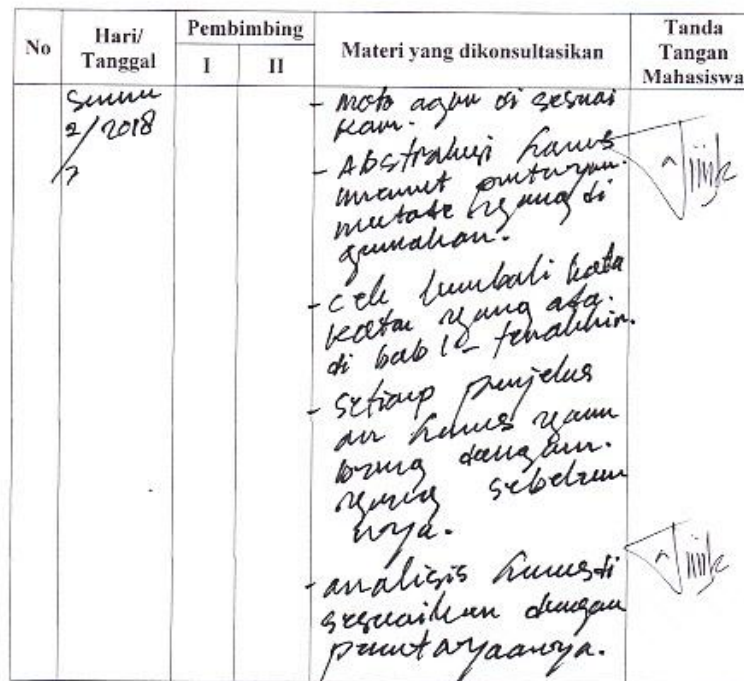 No Hari/ Tanggal Pembimbing Materi yang dikonsultasikan Tanda Tangan Mahasiswa
I II
Senin
2/2018
7
- Moto agar di sesuai
kan.
- Abstraksi harus
memuat
metode yang di
gunakan.
- Cek kembali kata
kata yang ada
di bab 1 - terakhir.
- Setiap penjelas
an harus
dengan
yang sebelum
nya.
- analisis harus di
sesuaikan dengan